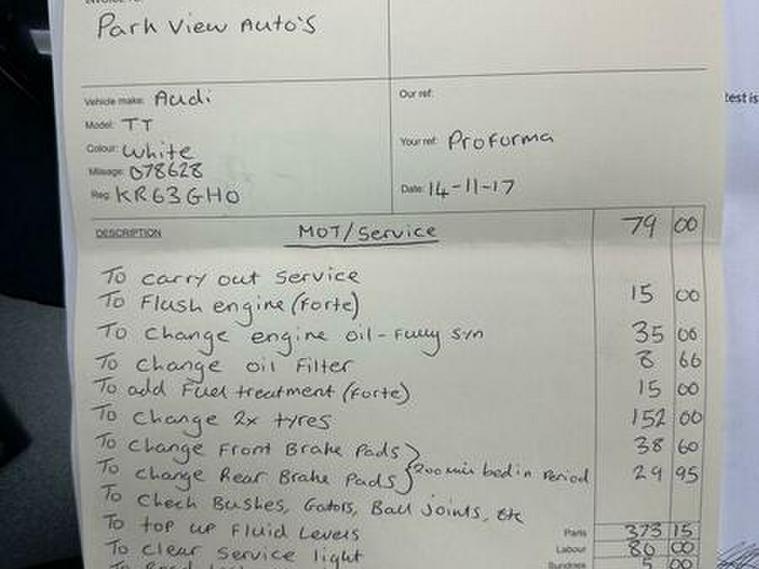 Park View Auto's
Vehicle make: Audi
Our ref:
Model: TT
Colour: White
Your ref: Proforma
Mileage: 078628
Reg: KR63GHO
Date: 14-11-17
DESCRIPTION MOT/Service 79 00
To carry out service
To Flush engine (Forte) 15 00
To change engine oil - Fully syn 35 00
To change oil Filter 8 60
To add Fuel treatment (Forte) 15 00
To change 2x tyres 152 00
To change Front Brake Pads 38 60
To change Rear Brake Pads 200 mile bed in Period 29 95
To check Bushes, Gators, Ball joints, etc
To top up Fluid Levels Parts 373 15
To clear service light Labour 80 00
Sundries 5 00
test is